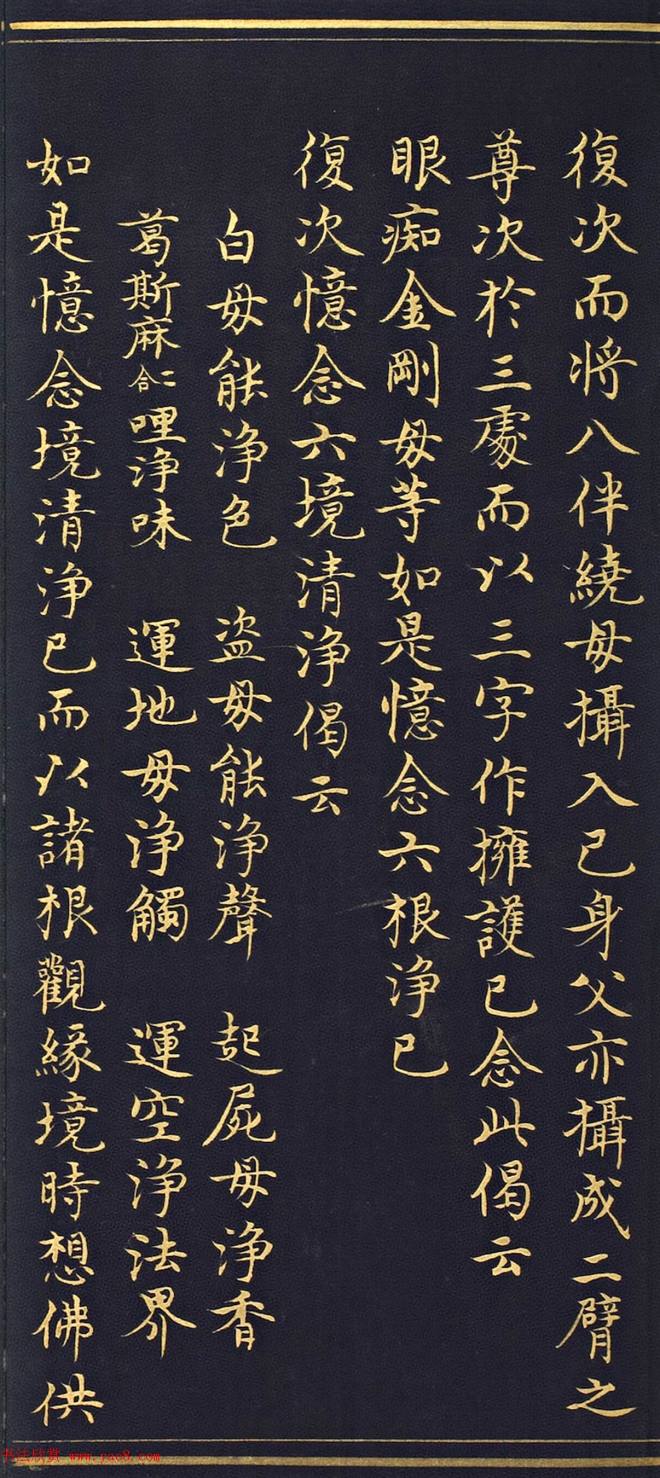 復次而將八伴繞母攝入已身父亦攝成二臂之
尊次於三處而以三字作擁護已念此偈云
眼痴金剛母等如是憶念六根淨已
復次憶念六境清淨偈云
白母能淨色　盜母能淨聲　起屍母淨香
葛斯麻二合哩淨味　運地母淨觸　運空淨法界
如是憶念境清淨已而以諸根觀緣境時想佛供
书法欣赏 www.yac8.com